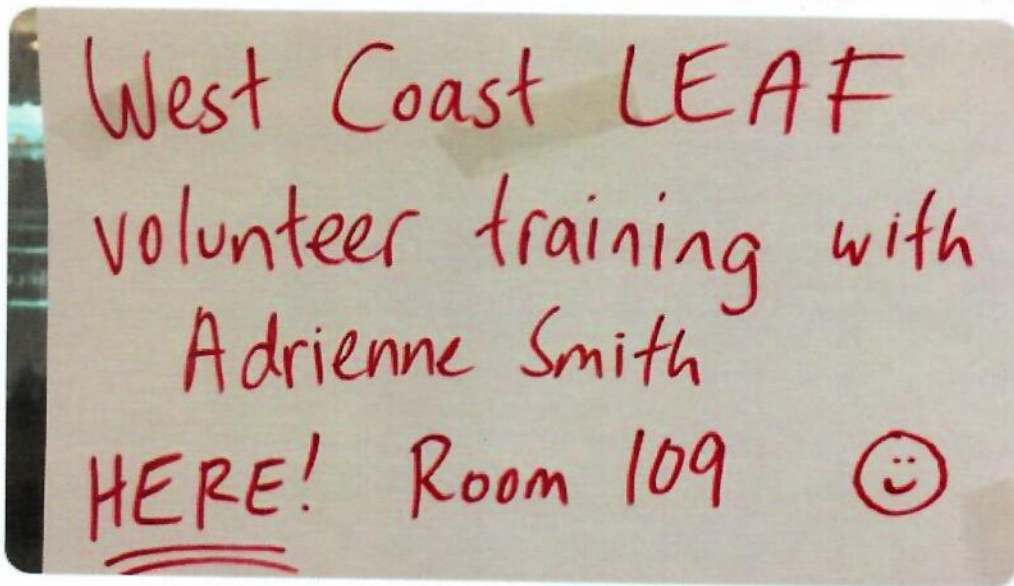 West Coast LEAF
volunteer training with
Adrienne Smith
HERE! Room 109